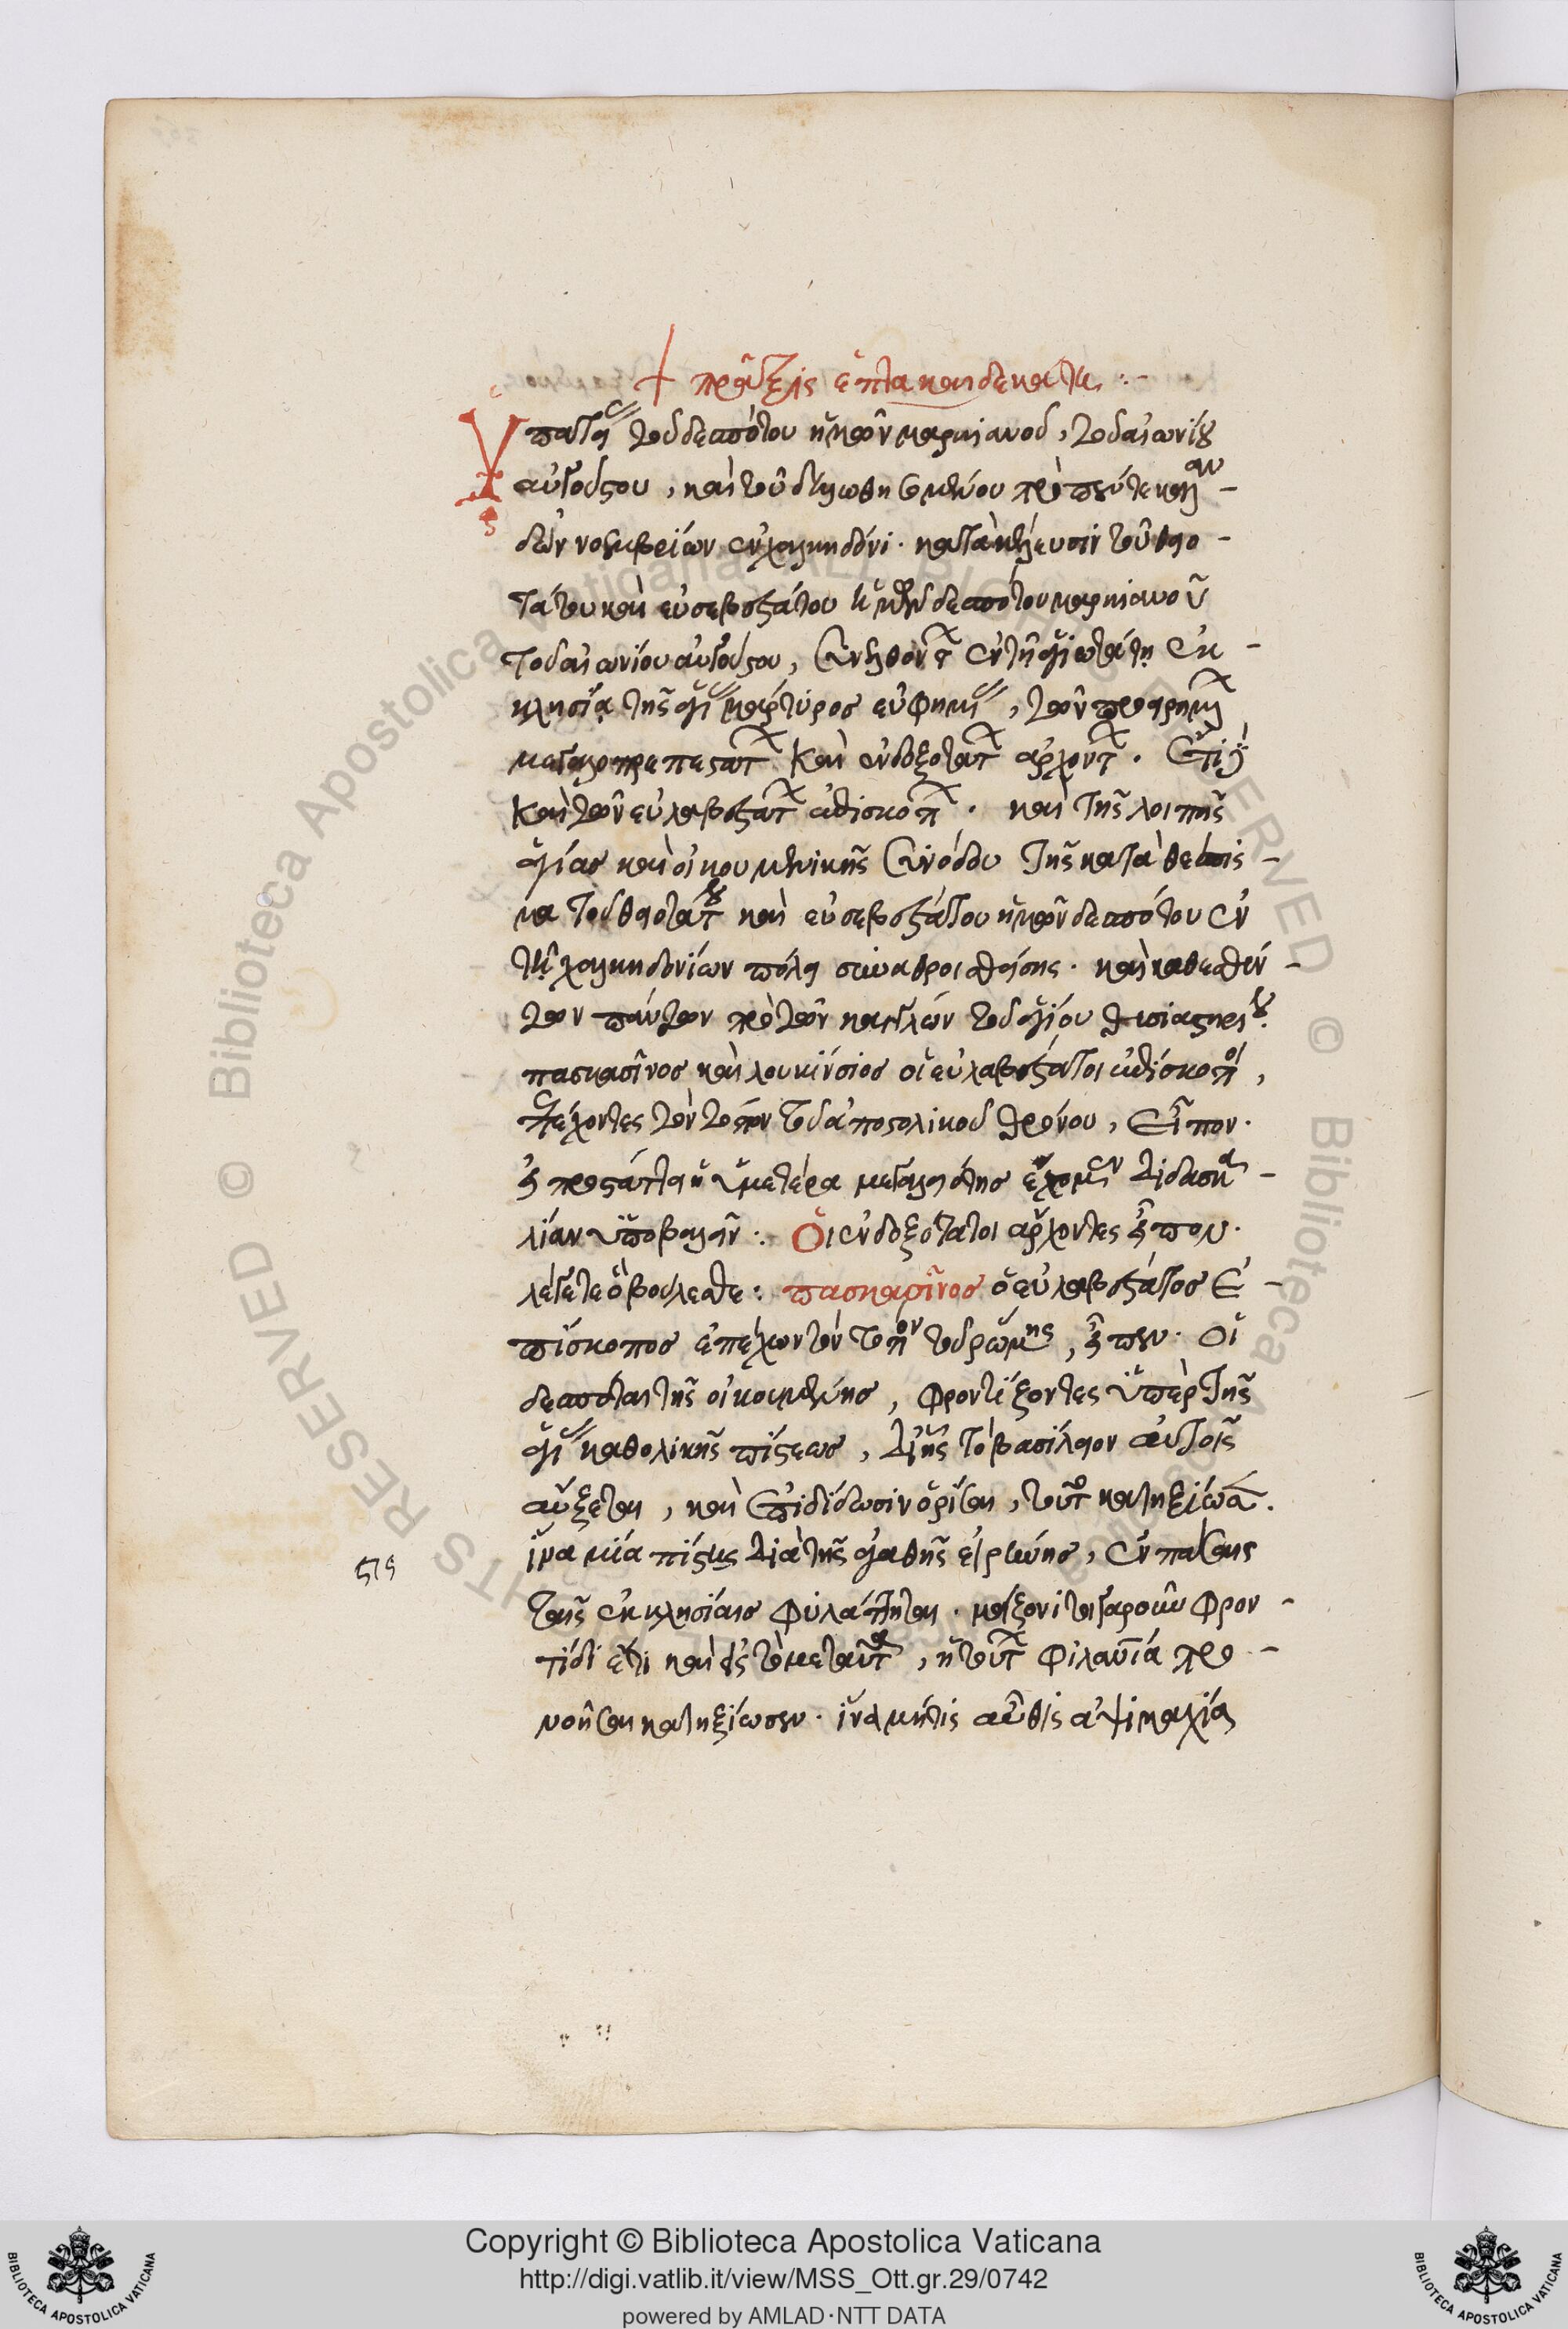 + πρᾶξις ἑπτακαιδεκάτη :-
Ὑπατείας τοῦ δεσπότου ἡμῶν μαρκιανοῦ, τοῦ αἰωνίου
αὐγούστου, καὶ τοῦ δηλωθησομένου πρὸ πέντε καλαν-
δῶν νοεμβρίων ἐν χαλκηδόνι. κατὰ κέλευσιν τοῦ θειο-
τάτου καὶ εὐσεβεστάτου ἡμῶν δεσπότου μαρκιανοῦ
τοῦ αἰωνίου αὐγούστου, συνελθόντων ἐν τῇ ἁγιωτάτῃ ἐκ-
κλησίᾳ τῆς ἁγίας μάρτυρος εὐφημίας, τῶν
μεγαλοπρεπεστάτων καὶ ἐνδοξοτάτων ἀρχόντων. ἔτι
καὶ τῶν εὐλαβεστάτων ἐπισκόπων. καὶ τῆς λοιπῆς
ἁγίας καὶ οἰκουμενικῆς συνόδου τῆς κατὰ θέσπισ-
μα τοῦ θειοτάτου καὶ εὐσεβεστάτου ἡμῶν δεσπότου ἐν
τῇ χαλκηδονίων πόλει συναθροισθείσης. καὶ καθεσθέν-
των πάντων πρὸ τῶν καγκέλων τοῦ ἁγίου θυσιαστηρίου.
πασκασῖνος καὶ λουκίνσιος οἱ εὐλαβέστατοι ἐπίσκοποι,
ἐπέχοντες τὸν τόπον τοῦ ἀποστολικοῦ θρόνου, εἶπον.
εἰ προστάττει ἡ ὑμετέρα μεγαλειότης ἔχομεν διδασκα-
λίαν ὑποβαλεῖν :. Οἱ ἐνδοξότατοι ἄρχοντες εἶπον.
λέγετε ὃ βούλεσθε : πασκασῖνος ὁ εὐλαβέστατος ἐ-
πίσκοπος ἐπέχων τὸν τόπον τοῦ ῥώμης, εἶπεν. Οἱ
δεσπόται τῆς οἰκουμένης, φροντίζοντες ὑπὲρ τῆς
ἁγίας καθολικῆς πίστεως, δι' ἧς τὸ βασίλειον αὐτοῖς
αὔξεται, καὶ ἐπιδίδωσιν ὁρίσαι, τοῦτο κατηξίωσαν.
ἵνα μία πίστις διὰ τῆς ἀγαθῆς εἰρήνης, ἐν πάσαις
ταῖς ἐκκλησίαις φυλάττηται. μείζονί τε γὰρ οὖν φρον-
τίδι ἔτι καὶ εἰς τὸ μετὰ ταῦτα, ἡ τούτων φιλανθρωπία προ-
νοῆσαι κατηξίωσεν. ἵνα μήτις αὖθις ἁψιμαχία
Copyright © Biblioteca Apostolica Vaticana
http://digi.vatlib.it/view/MSS_Ott.gr.29/0742
powered by AMLAD·NTT DATA